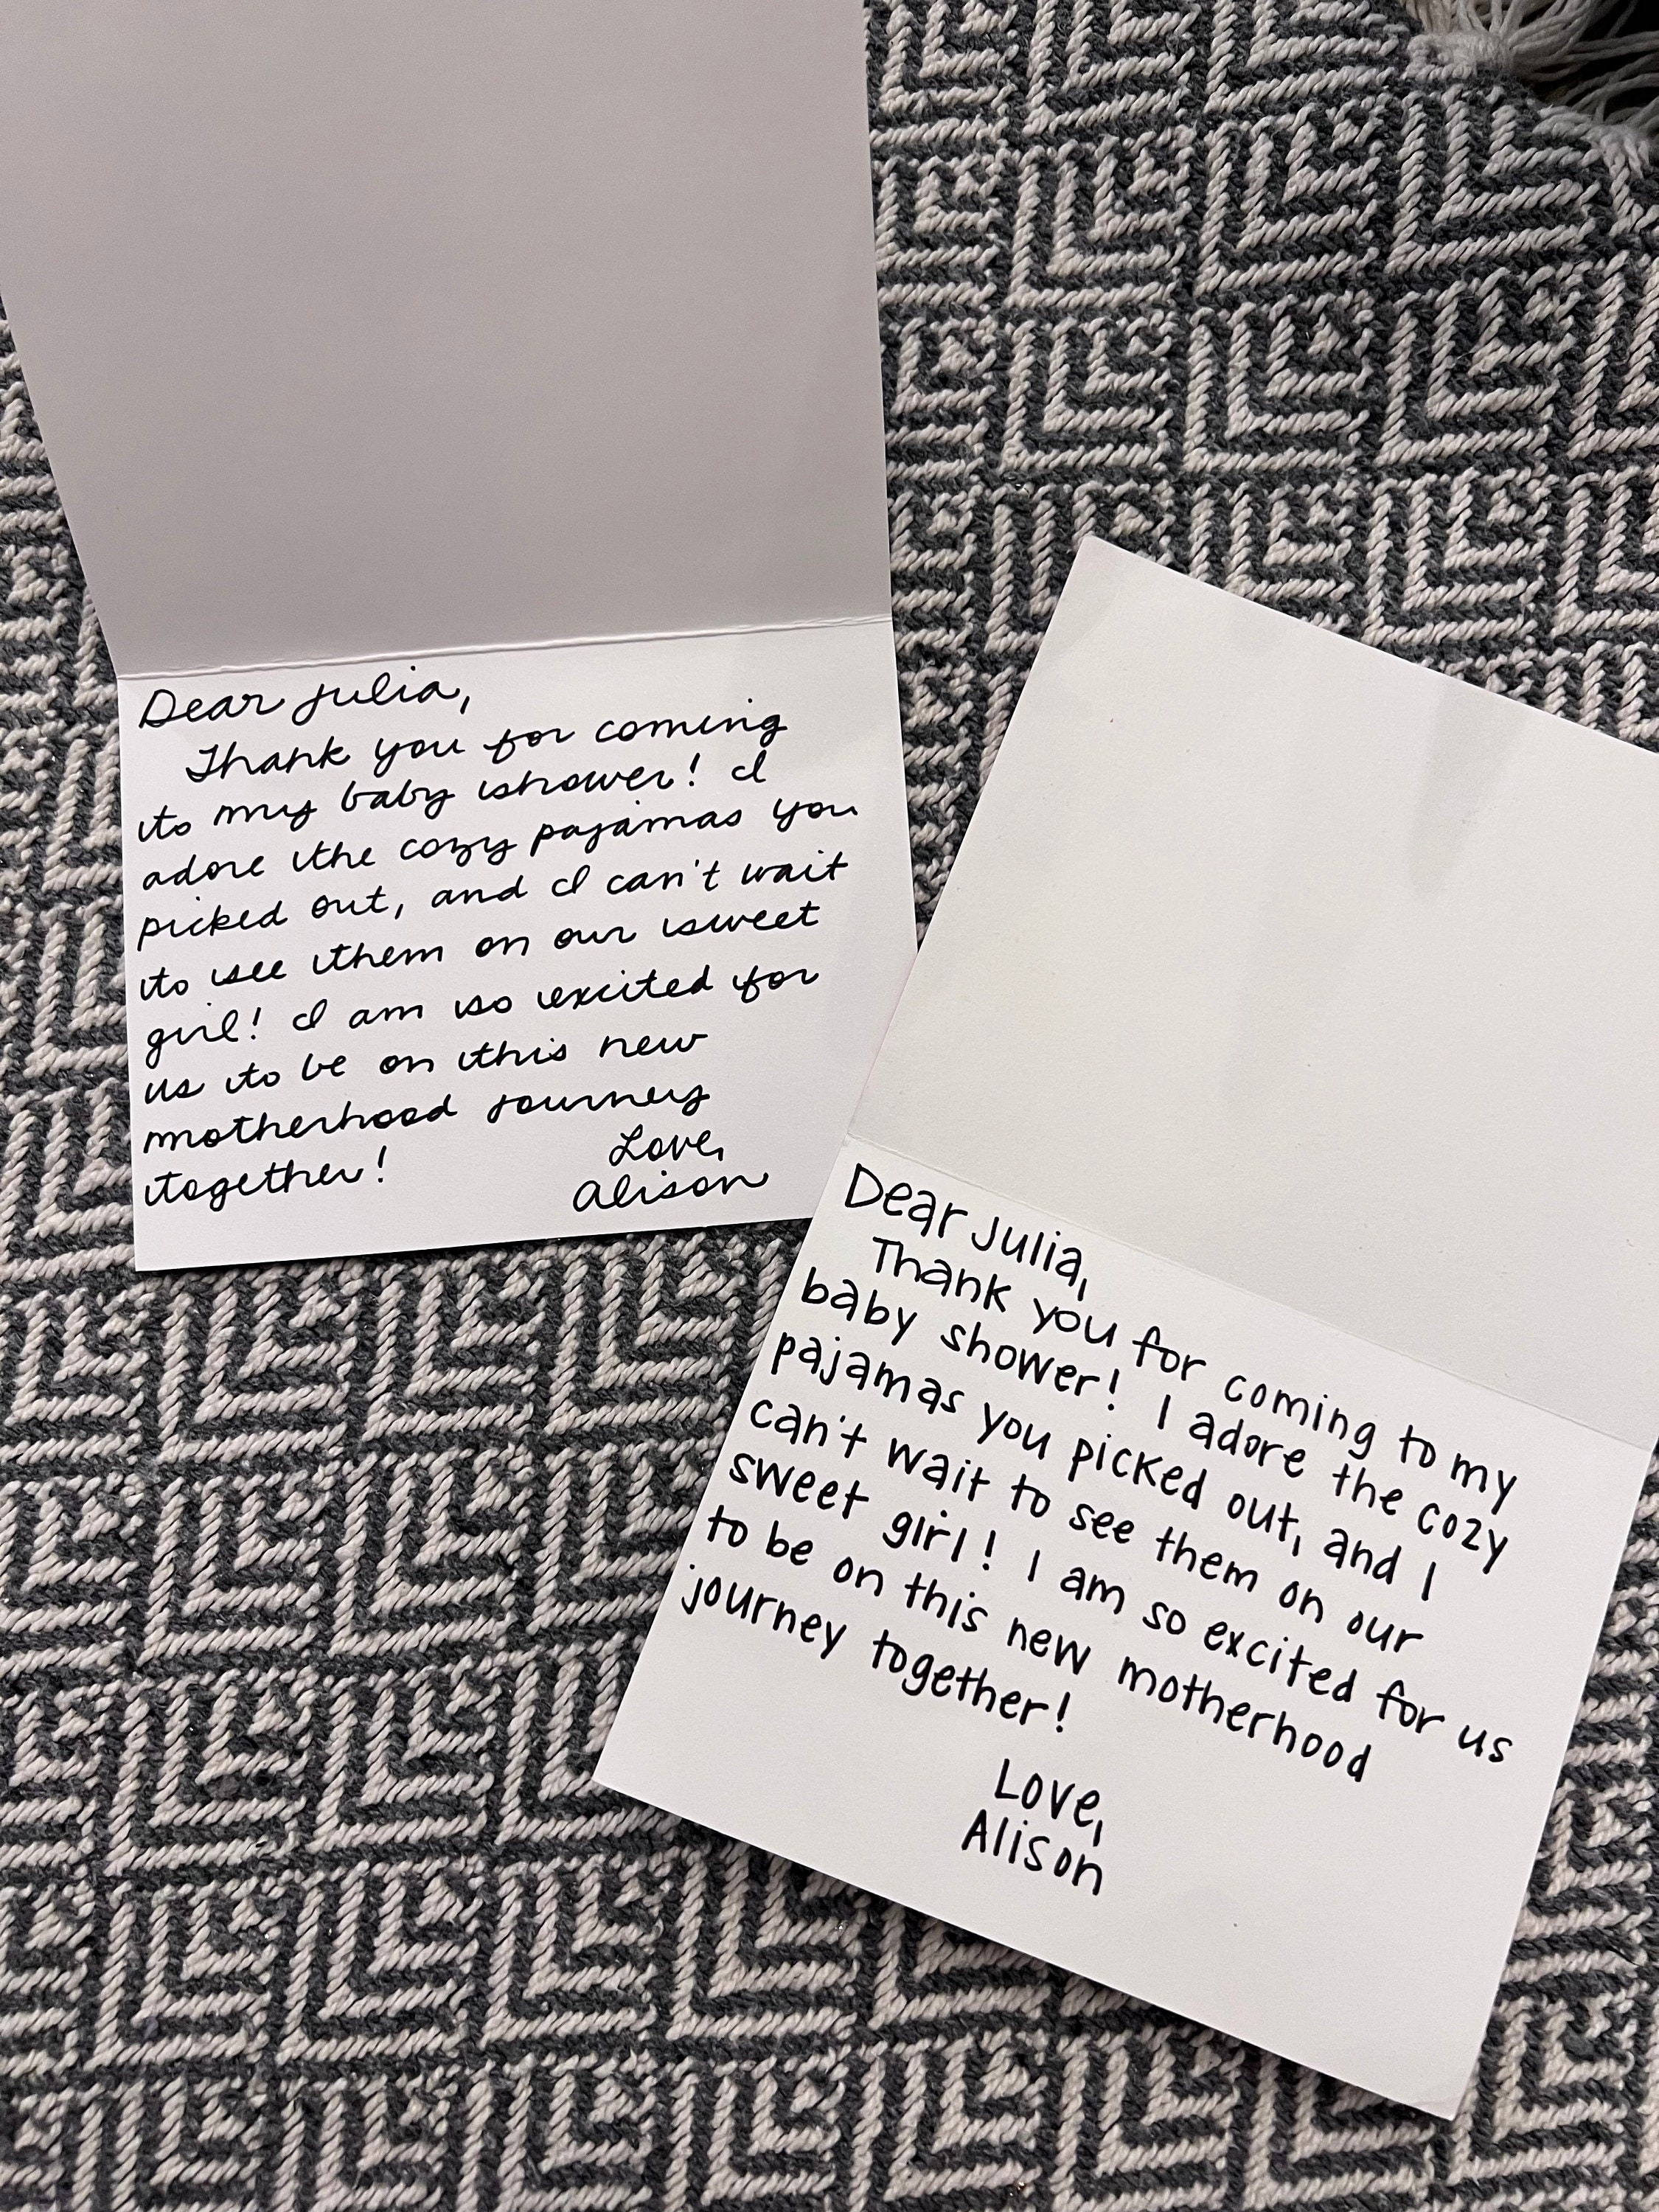 Dear Julia,
Thank you for coming
to my baby shower! I
adore the cozy pajamas you
picked out, and I can't wait
to see them on our sweet
girl! I am so excited for
us to be on this new
motherhood journey
together!
Love,
Alison
Dear Julia,
Thank you for coming to my
baby shower! I adore the cozy
pajamas you picked out, and I
can't wait to see them on our
sweet girl! I am so excited for us
to be on this new motherhood
journey together!
Love,
Alison